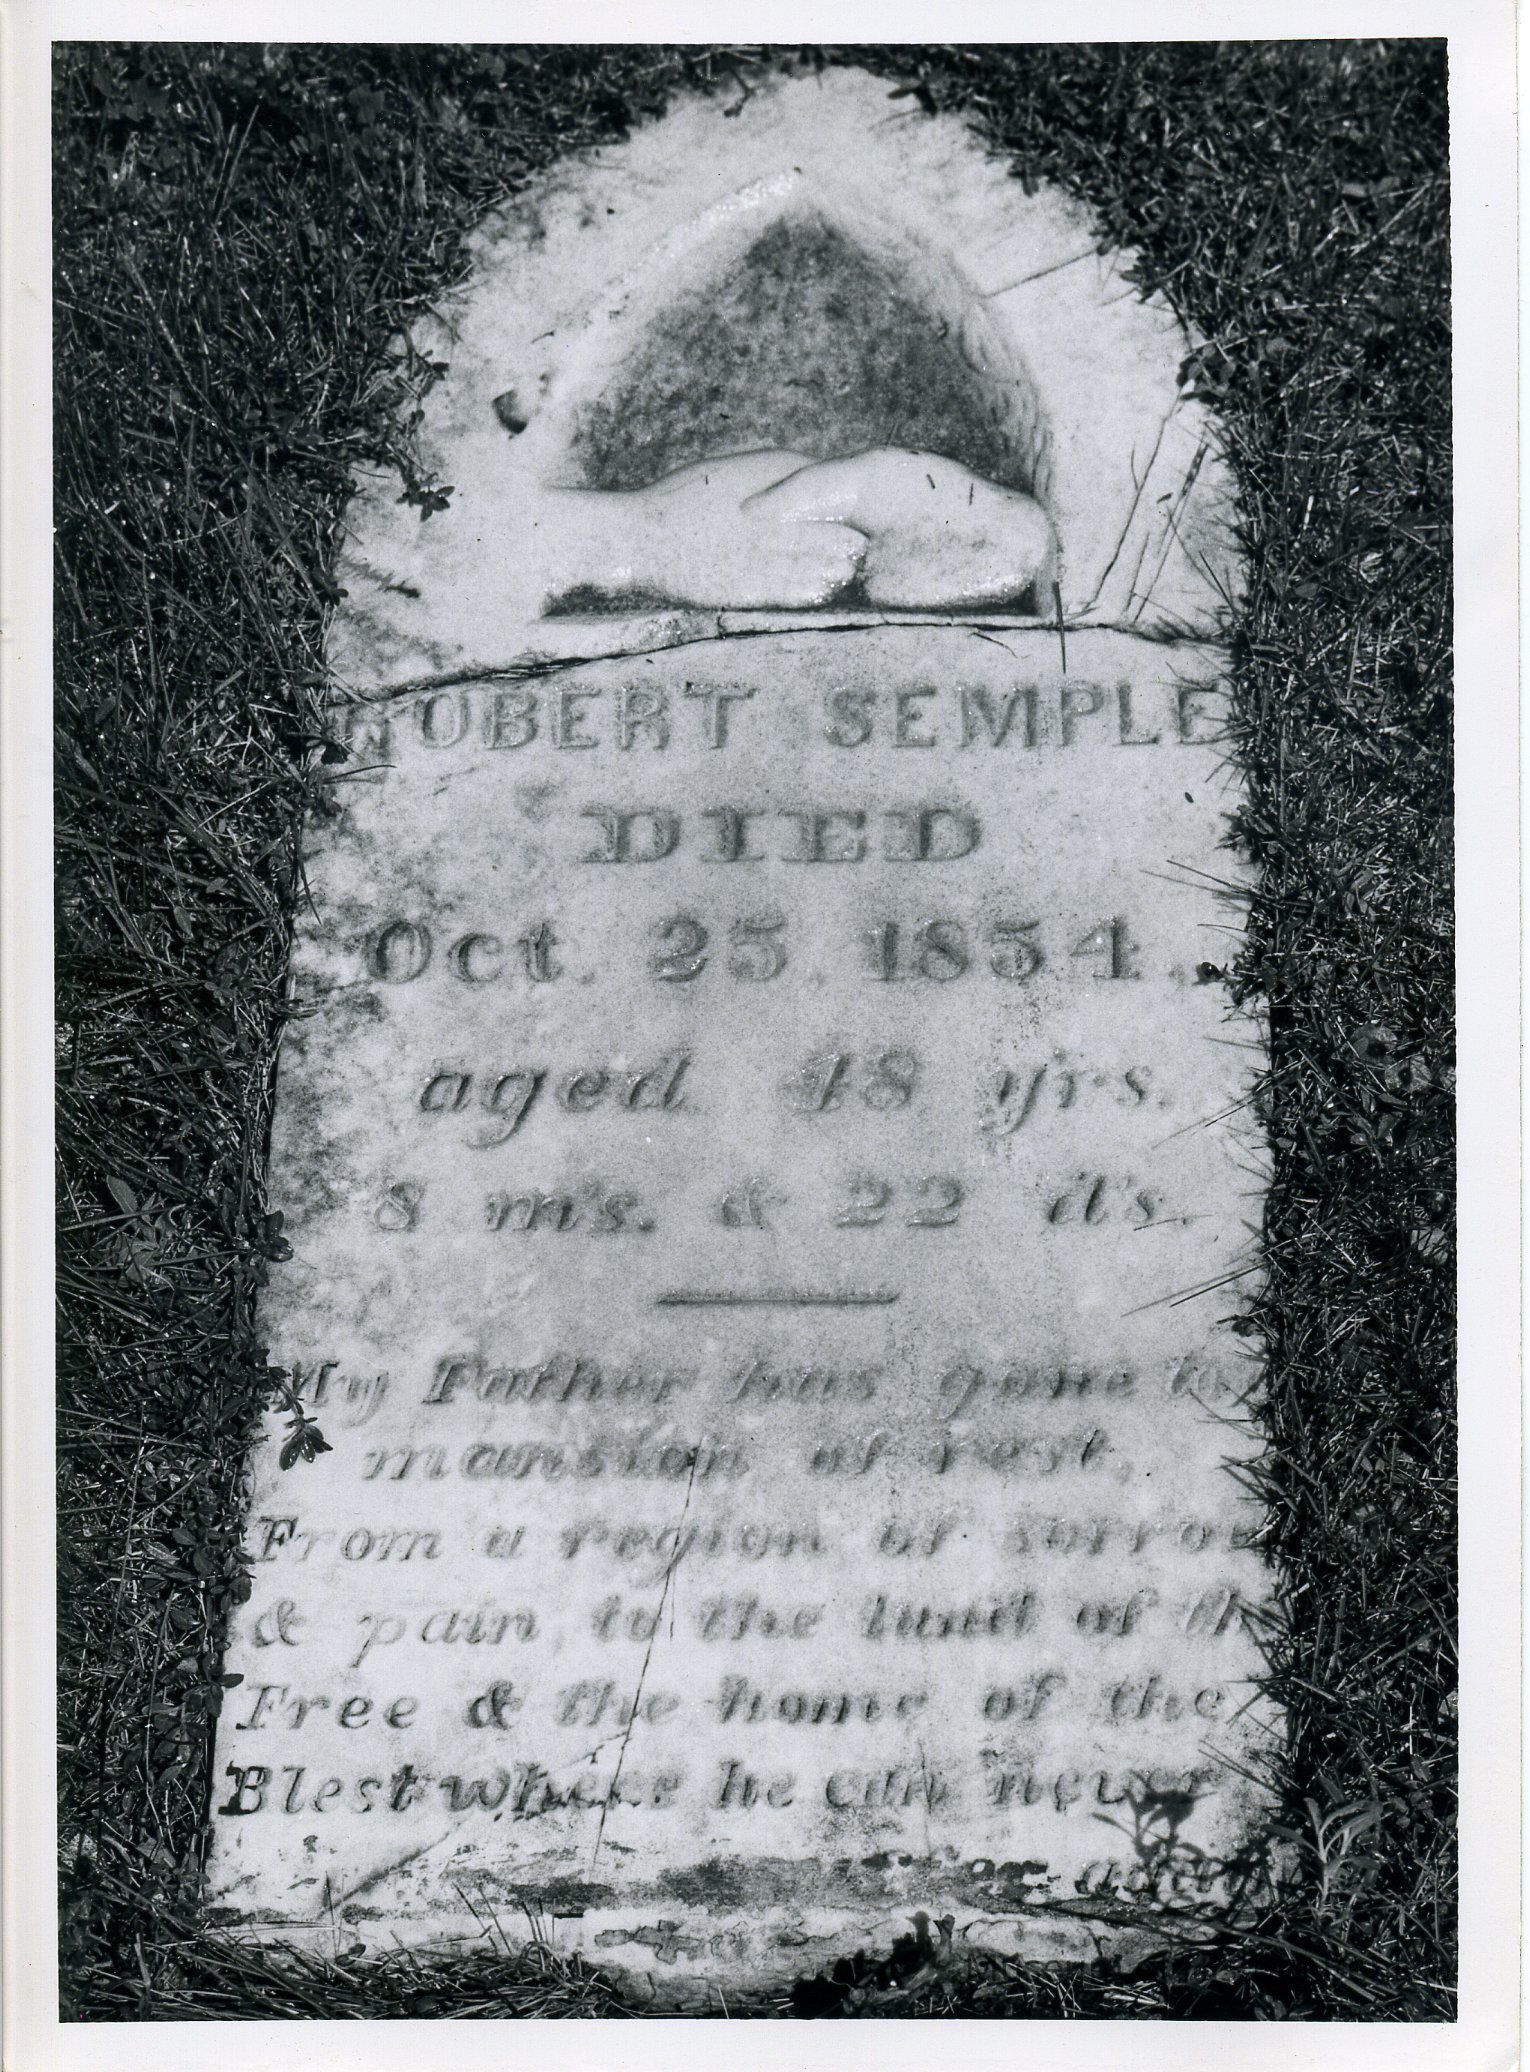 ROBERT SEMPLE
DIED
Oct. 25, 1854.
aged 48 yrs.
8 m's. & 22 d's.
My Father has gone to
mansion of rest,
From a region of sorrow
& pain, to the land of th
Free & the home of the
Blest where he can never